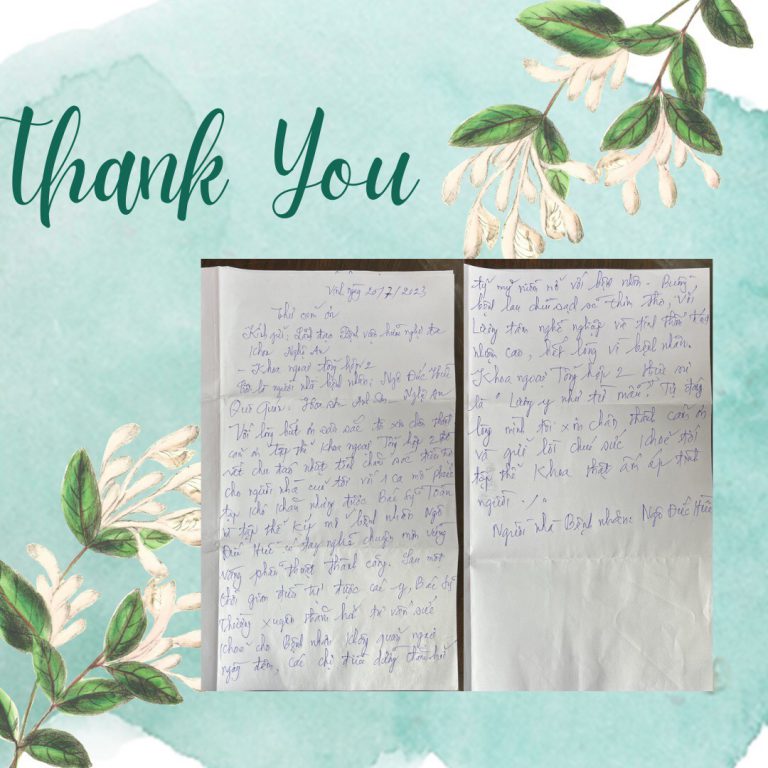 Thank You
Vinh, ngày 20/7/2023
Thư cảm ơn
Kính gửi: Lãnh đạo Bệnh viện hữu nghị đa
khoa Nghệ An
- Khoa ngoại tổng hợp 2
là người nhà bệnh nhân: Ngô Đức Hiếu
Quê Quán: Hoa Sơn Anh Sơn - Nghệ An
Với lòng biết ơn sâu sắc tôi xin chân thành
cảm ơn tập thể Khoa ngoại Tổng hợp 2 đã
chu đáo nhiệt tình chăm sóc điều trị
cho người nhà của tôi vì 1 ca mổ phức
tạp khó khăn nhưng được Bác sỹ Toàn
và tập thể kíp mổ bệnh nhân Ngô
Đức Hiếu có tay nghề chuyên môn vững
vàng phẫu thuật thành công. Sau một
thời gian điều trị được các y, Bác sỹ
thường xuyên thăm hỏi tư vấn sức
khoẻ cho Bệnh nhân không quản ngại
ngày đêm, các chị điều dưỡng
tỷ mỷ với bệnh nhân. Buồng
bệnh lau chùi sạch sẽ thơm tho, với
Lương tâm nghề nghiệp và tinh thần trách
nhiệm cao, hết lòng vì bệnh nhân.
Khoa ngoại Tổng hợp 2 thực sự
là "Lương y như từ mẫu". Từ đáy
lòng mình tôi xin chân thành cảm ơn
và gửi lời chúc sức khoẻ tới
tập thể Khoa thật ấm áp tình
người ./.
Người nhà Bệnh nhân: Ngô Đức Hiếu